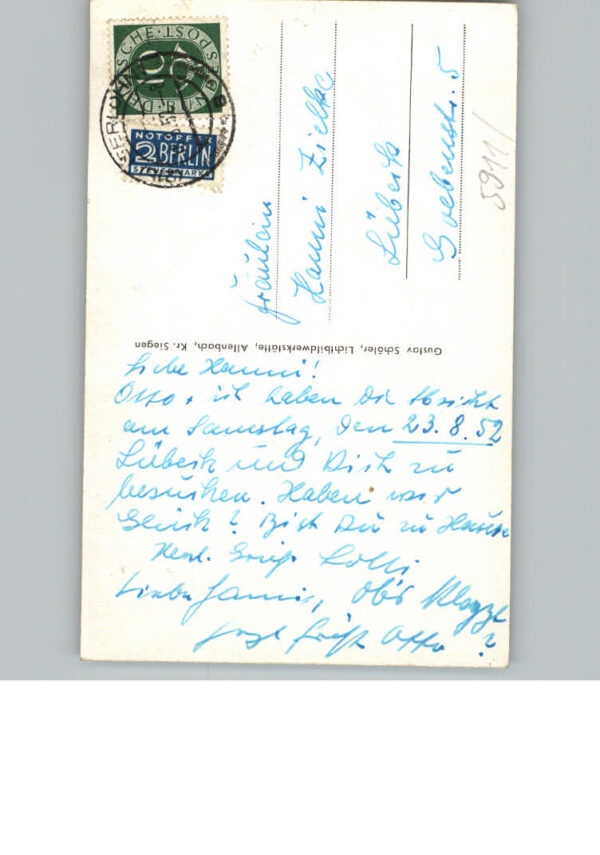 DEUTSCHE BUNDESPOST
10
NOTOPFER
2 BERLIN
STEUERMARKE
Fräulein
Hanni Zielke
Lübeck
Goebenstr. 5
5911/
Gustav Schöler, Lichtbildwerkstätte, Allenbach, Kr. Siegen
Liebe Hanni!
Otto + ich haben die Absicht
am Samstag, den 23.8.52
Lübeck und Dich zu
besuchen. Haben wir
Glück? Bist Du zu Hause
Herzl. Grüße Lolli
Liebe Hanni, ob's klappt
?
Otto